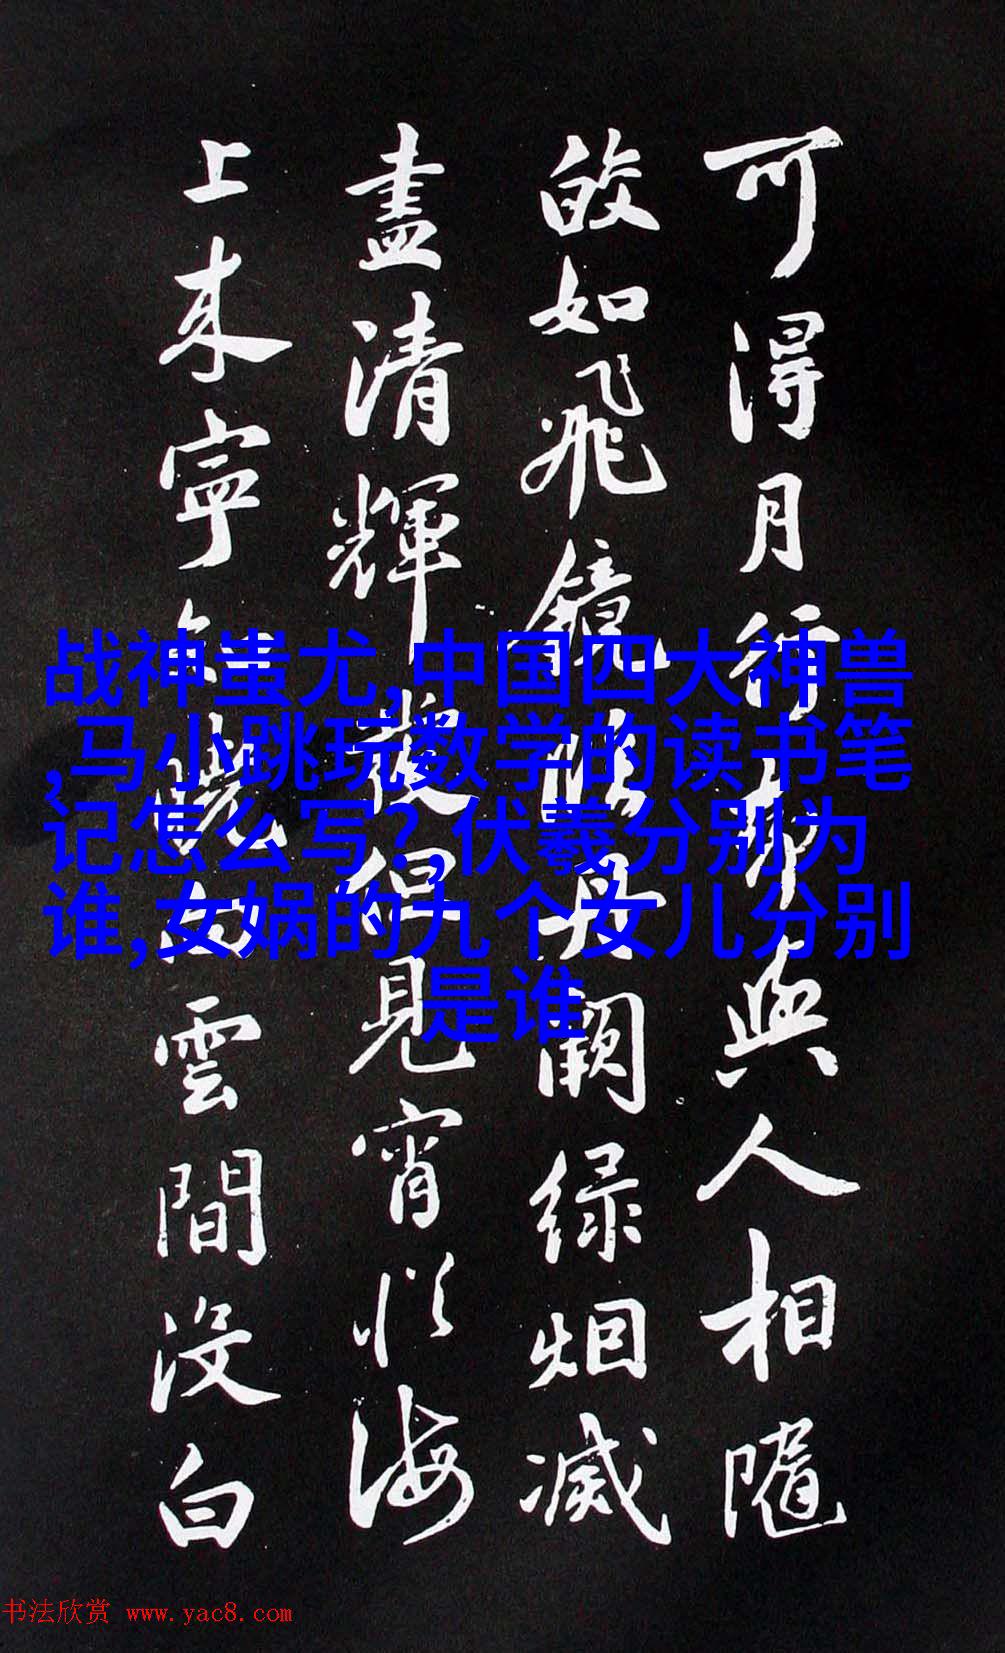 可得月行却與人相隨
皎如飛鏡臨丹闕緑烟滅
盡清輝發但見宵從海
上来寧知曉向雲間没白
战神蚩尤,中国四大神兽
,马小跳玩数学的读书笔
记怎么写?,伏羲分别为
谁,女娲的九个女儿分别
是谁
书法欣赏 www.yac8.com